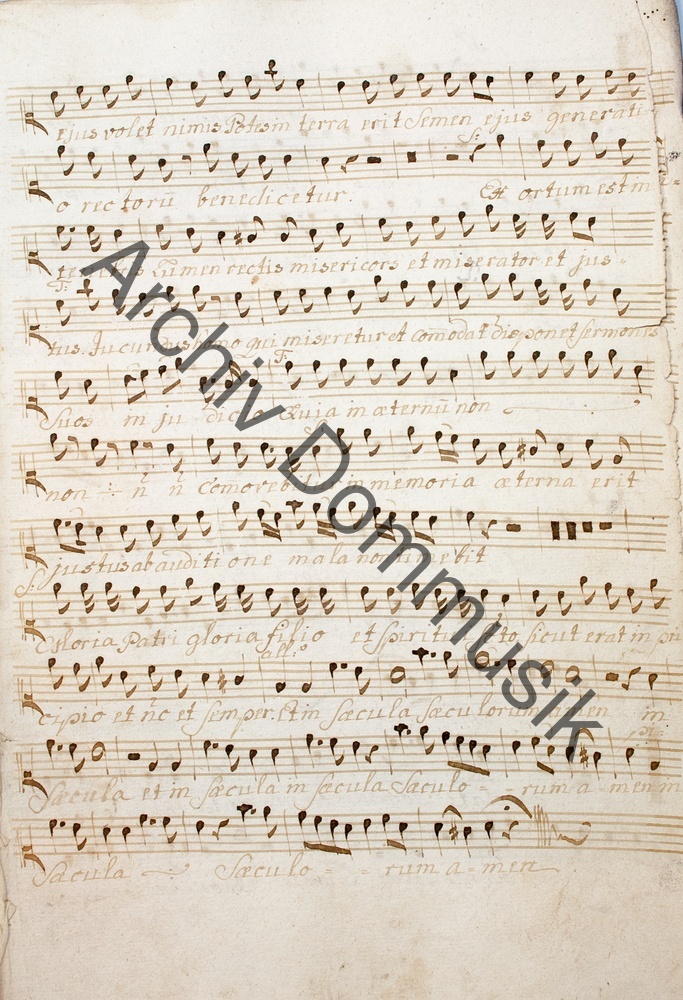 ejus volet nimis Potens in terra erit Semen ejus generati-
S:
o rectorū benedicetur. Ex ortum est in
tenebris Lumen rectis misericors et miserator et jus-
T:
tus. Jucundus homo qui miseretur et comōdat disponet sermones
T:
Suos in ju dicio Quia in æternū non
non ñ ñ comovebitur in memoria æterna erit
justus ab auditione mala non timebit
S:
Gloria Patri gloria filio et Spiritui Sto sicut erat in prin
all:o
cipio et nc et semper. Et in sæcula sæculorum amen in
Sæcula et in sæcula in sæcula Sæculo - - rum a - men in
Sæcula Sæculo - - rum a - men
Archiv Dommusik